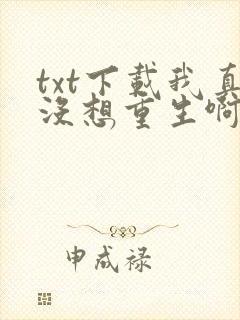 txt下载我真
没想重生啊
申成禄